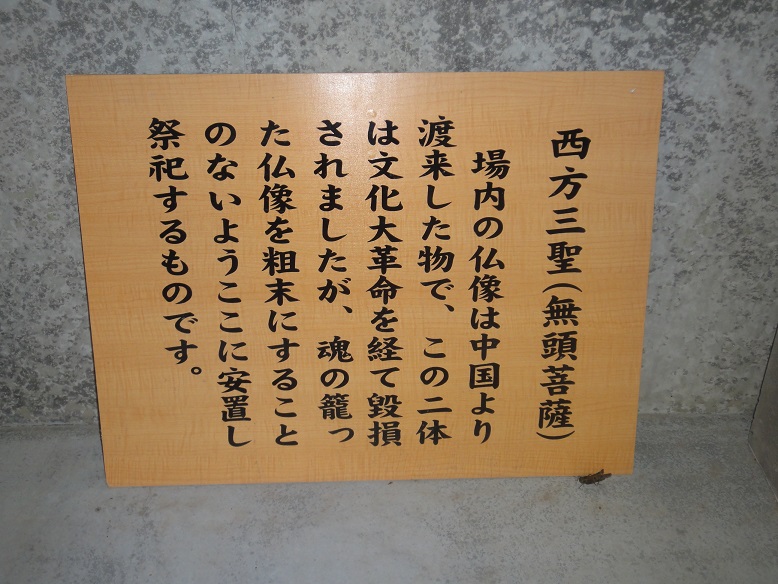 西方三聖(無頭菩薩)
場内の仏像は中国より
渡来した物で、この二体
は文化大革命を経て毀損
されましたが、魂の籠っ
た仏像を粗末にすること
のないようここに安置し
祭祀するものです。